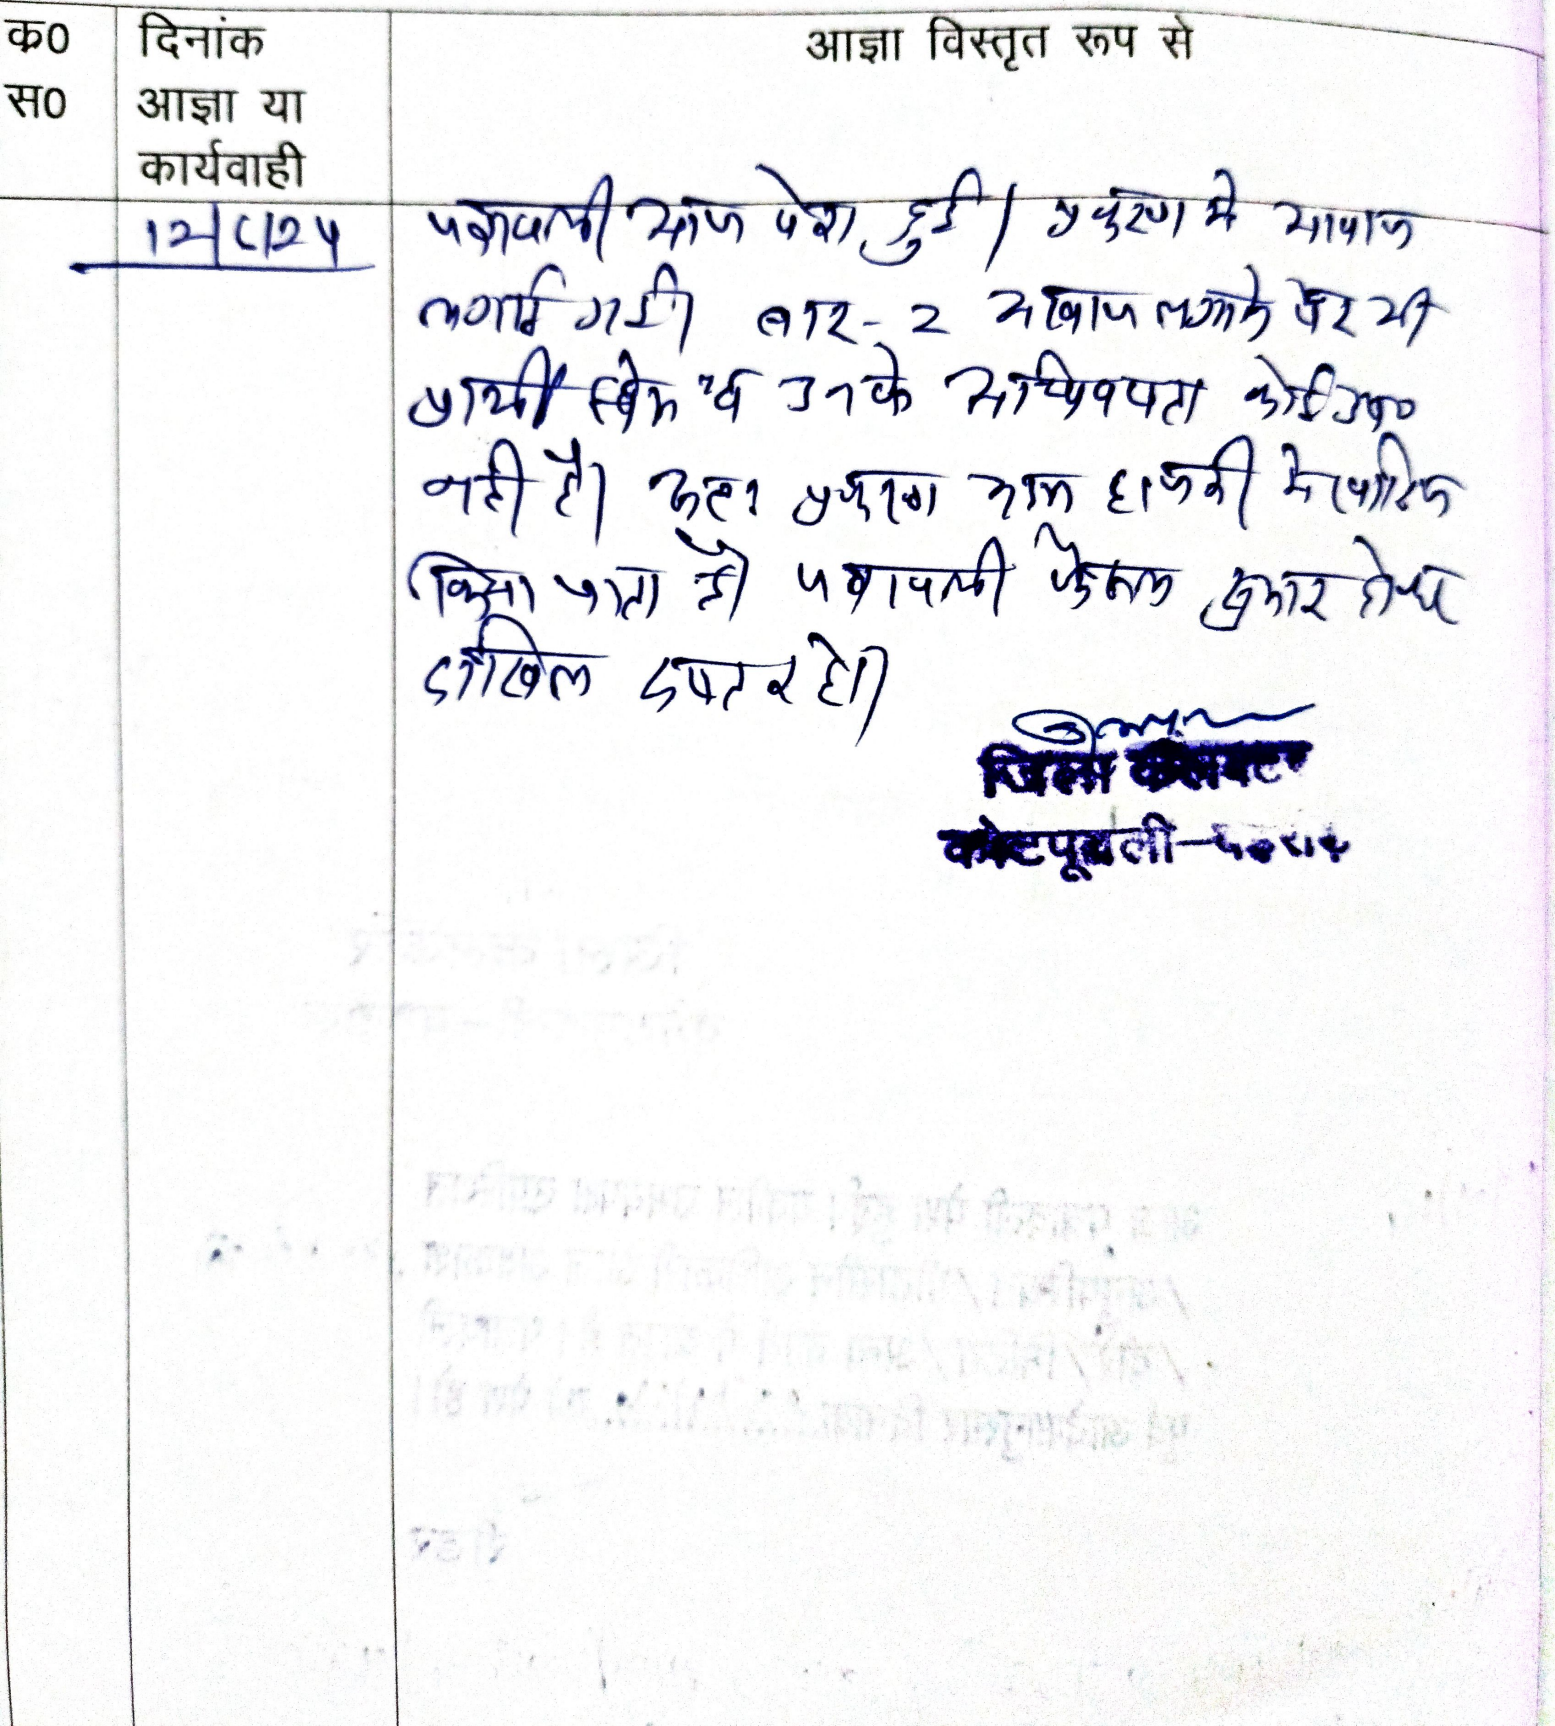 क0 स0
दिनांक आज्ञा या कार्यवाही
आज्ञा विस्तृत रूप से
पत्रावली आज पेश हुई। प्रकरण में आवाज
लगाई गई। बार-2 आवाज लगाने पर भी
प्रार्थी स्वंय व उनके अधिवक्ता कोई उप0
नही है। अतः प्रकरण अदम हाजरी मे खारिज
किया जाता है। पत्रावली फैसल शुमार होकर
दाखिल दफ्तर हो।
जिला कलक्टर
कोटपूतली-